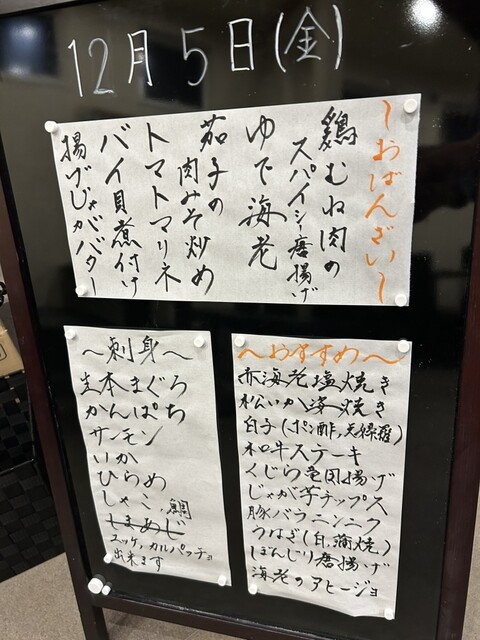 12月5日(金)
〜おばんざい〜
鶏むね肉の
スパイシー唐揚げ
ゆで海老
茄子の
肉みそ炒め
トマトマリネ
バイ貝煮付け
揚げじゃがバター
〜刺身〜
生本まぐろ
かんぱち
サーモン
いか
ひらめ
しゃこ、鯛
しまあじ
ユッケ、カルパッチョ
出来ます
〜おすすめ〜
赤海老塩焼き
松いか姿焼き
白子(ポン酢,天婦羅)
和牛ステーキ
くじら竜田揚げ
じゃが芋チップス
豚バラニンニク
うなぎ(白,蒲焼)
ぼんじり唐揚げ
海老のアヒージョ